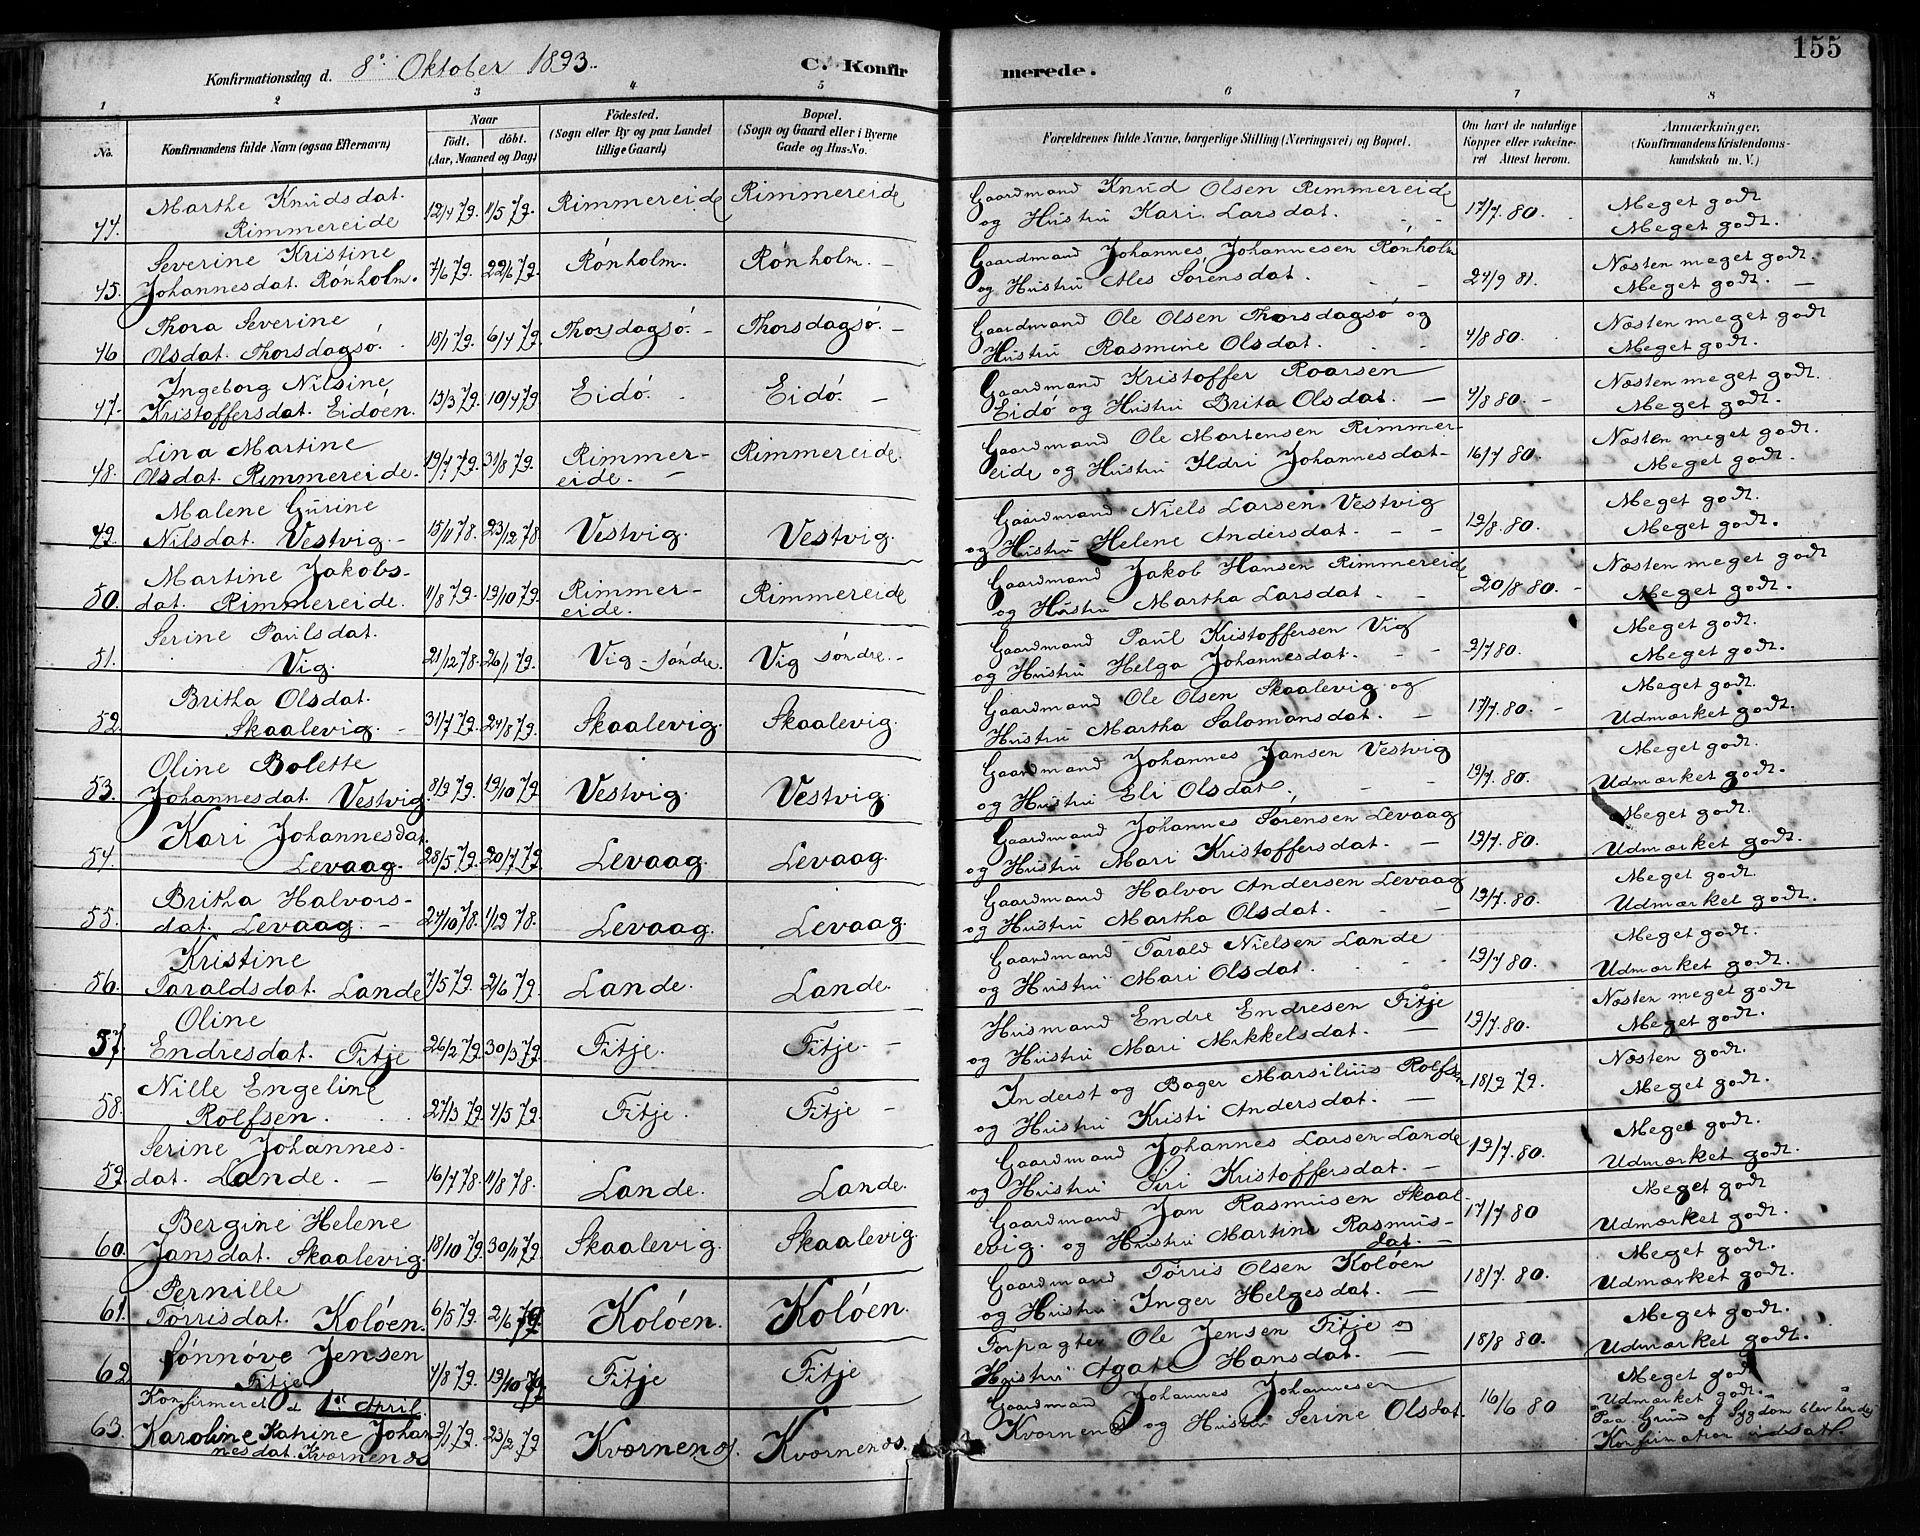 155
Konfirmationsdag d. 8de Oktober 1893. C. Konfirmerede.
1 2 3 4 5 6 7 8
No. Konfirmandens fulde Navn (ogsaa Efternavn) Naar født, døbt. (Aar, Maaned og Dag) Fødested. (Sogn eller By og paa Landet tillige Gaard) Bopæl. (Sogn og Gaard eller i Byerne Gade og Hus-No. Forældrenes fulde Navne, borgerlige Stilling (Næringsvei) og Bopæl. Om havt de naturlige Kopper eller vakcineret Attest herom. Anmærkninger, (Konfirmandens Kristendomskundskab m. V.)
Marthe Knudsdat. Gaardmand Knud Olsen Rimmereide Meget godt
44. Rimmereide 12/4 79. 11/5 79. Rimmereide Rimmereide og Hustru Kari Larsdat. 17/7. 80. Meget godt.
Severine Kristine Gaardmand Johannes Johannesen Rønholm Næsten meget godt.
45. Johannesdat. Rønholm. 7/6 79. 22/6 79. Rønholm. Rønholm. og Hustru Ales Sørensdat. 24/9 81. Meget godt.
Thora Severine Gaardmand Ole Olsen Thorsdagsø og Næsten meget godt
46 Olsdat. Thorsdagsø. 18/1 79. 6/4 79. Thorsdagsø. Thorsdagsø. Hustru Rasmine Olsdat. 4/8 80. Meget godt.
Ingeborg Nilsine Gaardmand Kristoffer Roarsen Næsten meget godt.
47. Kristoffersdat. Eidøen. 13/3 79. 10/4 79 Eidø. Eidø. Eidø og Hustru Brita Olsdat. 4/8 80. Meget godt.
Lina Martine Gaardmand Ole Martensen Rimmer- Næsten meget godt.
48. Olsdat. Rimmereide. 19/7 79. 31/8 79. Rimmereide. Rimmereide. eide og Hustru Ildri Johannesdat. 16/7 80. Meget godt.
Malene Gurine Gaardmand Niels Larsen Vestvig Meget godt.
49. Nilsdat. Vestvig. 15/11 78. 23/12 78. Vestvig. Vestvig. og Hustru Helene Andersdat. 19/8. 80. Meget godt.
Martine Jakobs- Gaardmand Jakob Hansen Rimmereide Næsten meget godt
50. dat. Rimmereide. 11/8 79. 19/10 79. Rimmereide. Rimmereide og Hustru Martha Larsdat. 20/8 80. Meget godt.
Serine Paulsdat. Gaardmand Paul Kristoffersen Vig Meget godt.
51. Vig. 21/12 78. 26/1 79. Vig - søndre. Vig søndre. og Hustru Helga Johannesdat. 2/7 80. Meget godt.
Britha Olsdat. Gaardmand Ole Olsen Skaalevig og Meget godt.
52. Skaalevig. 31/7 79. 24/8 79. Skaalevig. Skaalevig. Hustru Martha Salomonsdat. 17/7. 80. Udmærket godt.
Oline Bolette Gaardmand Johannes Jansen Vestvig Meget godt.
53. Johannesdat. Vestvig 8/9 79. 19/10 79. Vestvig. Vestvig. og Hustru Eli Olsdat. 19/7. 80. Udmærket godt.
Kari Johannesdat. Gaardmand Johannes Sørensen Levaag Meget godt.
54. Levaag. 28/5 79. 20/7 79. Levaag. Levaag. og Hustru Mari Kristoffersdat. 19/7. 80. Udmærket godt.
Britha Halvors- Gaardmand Halvor Andersen Levaag Meget godt.
55. dat. Levaag. 27/10 78. 1/12 78. Levaag. Levaag. og Hustru Martha Olsdat. 19/7. 80. Udmærket godt.
Kristine Gaardmand Tarald Nielsen Lande Meget godt.
56. Taraldsdat. Lande 7/5 79. 2/6 79. Lande. Lande. og Hustru Mari Olsdat. 19/7 80. Udmærket godt.
Oline Husmand Endre Endresen Fitje Næsten meget godt
57. Endresdat. Fitje 26/2 79. 30/3 79. Fitje. Fitje. og Hustru Mari Mikkelsdat. 19/7. 80. Meget godt.
Nille Engeline Inderst og Bager Marsilius Rolfsen Næsten godt.
58. Rolfsen. 27/3 79. 4/5 79. Fitje. Fitje og Hustru Kristi Andersdat. 18/9 79. Meget godt.
Serine Johannes- Gaardmand Johannes Larsen Lande Meget godt.
59. dat. Lande. 16/7 78. 11/8 78. Lande. Lande. og Hustru Siri Kristoffersdat. 19/7. 80. Udmærket godt.
Bergine Helene Gaardmand Jan Rasmusen Skaal- Meget godt
60. Jansdat. Skaalevig. 18/10 79. 30/11 79. Skaalevig. Skaalevig. evig. og Hustru Martine Rasmusdat. 17/7 80. Udmærket godt.
Pernille Gaardmand Tørris Olsen Koløen Meget godt.
61. Tørrisdat. Koløen. 6/5 79. 2/6 79. Koløen. Koløen. og Hustru Inger Helgesdat. 18/7. 80. Udmærket godt.
Sønnøve Jensen Forpagter Ole Jensen Fitje og Meget godt.
62 Fitje 4/8 79. 19/10 79. Fitje Fitje Hustru Agat Hansdat. 18/8 80. Udmærket godt.
Konfirmeret d 1ste April. Gaardmand Johannes Johannesen Meget godt Udmærket godt.
63. Karoline Katrine Johan 2/1 79. 23/2 79 Kvornenes. Kvornenes. Kvornenes og Hustru Serine Olsdat. 16/6 80 Paa Grund af Sygdom blev hendes
nesdat. Kvornenes Konfirmation udsat.